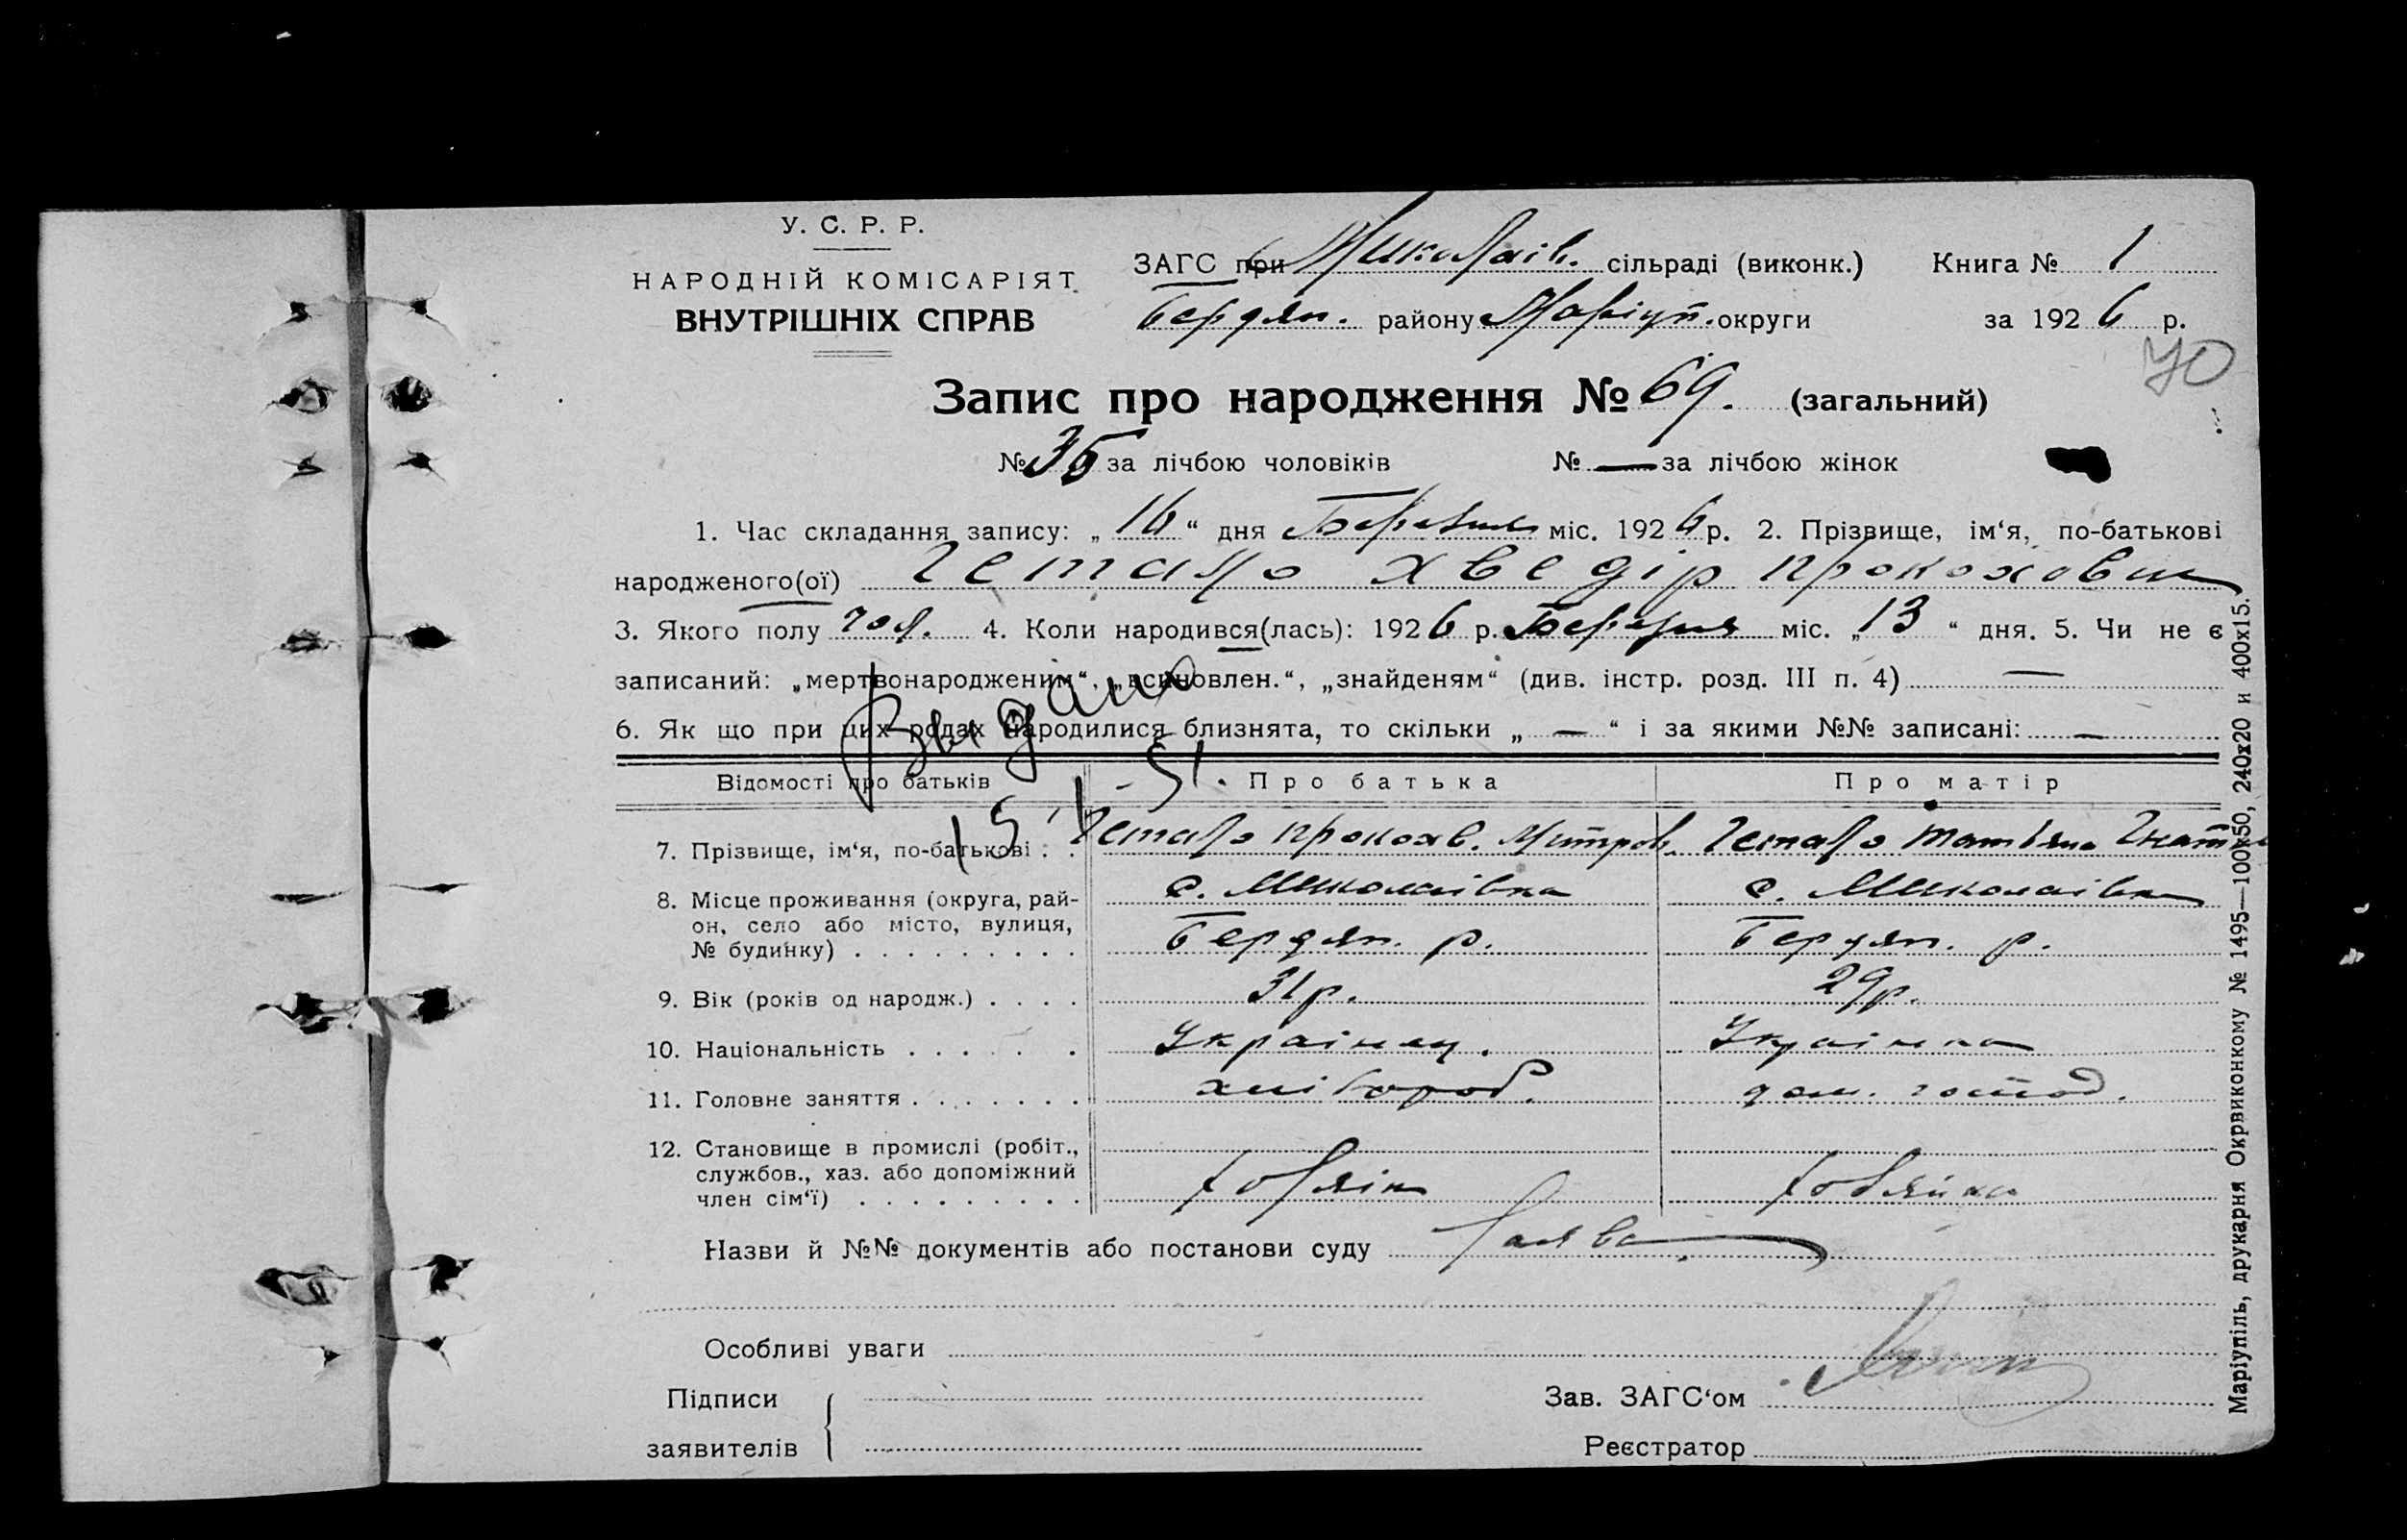 У. С. Р. Р.
НАРОДНІЙ КОМІСАРІЯТ
ВНУТРІШНІХ СПРАВ
ЗАГС при Миколаів. сільраді (виконк.) Книга № 1
Бердян. району Маріуп. округи за 1926 р.
70
Запис про народження № 69. (загальний)
№ 35 за лічбою чоловіків № — за лічбою жінок
1. Час складання запису: „16“ дня Березня міс. 1926 р. 2. Прізвище, ім‘я, по-батькові
народженого(ої) Гетало Хведір Прокохович
3. Якого полу чол. 4. Коли народився(лась): 1926 р. Березня міс. „13“ дня. 5. Чи не є
записаний: „мертвонародженим“, „всиновлен.“, „знайденям“ (див. інстр. розд. III п. 4) —
6. Як що при цих родах народилися близнята, то скільки „—“ і за якими №№ записані: —
Выдано
Відомості про батьків Про батька Про матір
7. Прізвище, ім‘я, по-батькові . . Гетало Прокохв. Митров. Гетало Татьяна Гнат
8. Місце проживання (округа, рай-
он, село або місто, вулиця,
№ будинку) . . . . . . . . .
с. Миколаівка с. Миколаівка
Бердян. р. Бердян. р.
9. Вік (років од народж.) . . . . 31р. 29р.
10. Національність . . . . . . Украінец. Украінка
11. Головне заняття . . . . . . . хлібороб. дом. господ.
12. Становище в промислі (робіт.,
службов., хаз. або допоміжний
член сім‘ї) . . . . . . . . .
Назви й №№ документів або постанови суду Заява
Особливі уваги
Підписи
заявителів
Зав. ЗАГС‘ом
Реєстратор
Маріупіль, друкарня Окрвиконкому № 1495—100х50, 240х20 и 400х15.